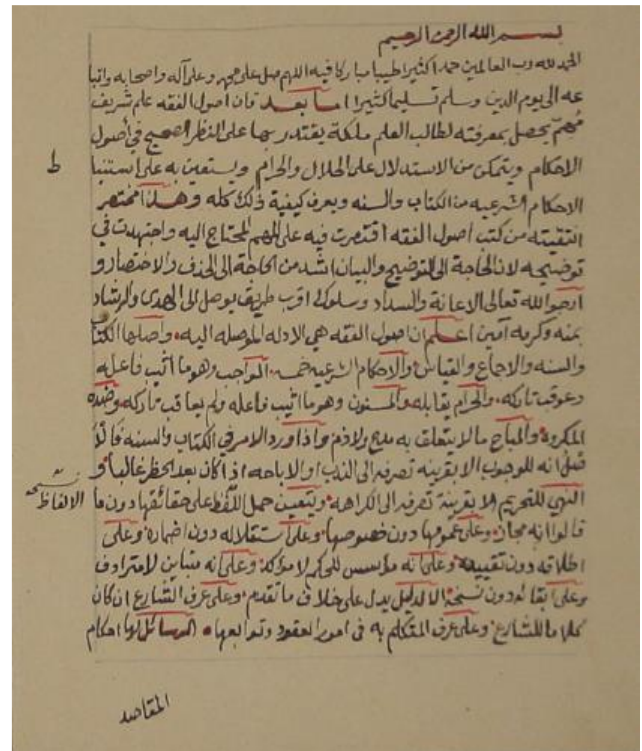 بسم الله الرحمن الرحيم
الحمد لله رب العالمين حمدا كثيرا طيبا مباركا فيه اللهم صل على محمد وعلى آله واصحابه واتبا
عه الى يوم الدين وسلم تسليما كثيرا اما بعد فان اصول الفقه علم شريف
مهم يحصل بمعرفته لطالب العلم ملكة يقتدر بها على النظر الصحيح في أصول
الاحكام ويتمكن من الاستدلال على الحلال والحرام ويستعين به على استنبا
ط
الاحكام الشرعيه من الكتاب والسنه ويعرف كيفية ذلك كله وهذا مختصر
انتقيته من كتب أصول الفقه اقتصرت فيه على المهم المحتاج اليه واجتهدت في
توضيحه لان الحاجة الى التوضيح والبيان اشد من الحاجة الى الحذف والاختصار و
ارجو الله تعالى الاعانة والسداد وسلوك اقرب طريق يوصل الى الهدى والرشاد
بمنه وكرمه آمين اعلم ان اصول الفقه هي الادله الموصله اليه واصلها الكتاب
والسنه والاجماع والقياس والاحكام الشرعيه خمسه الواجب وهو ما اثيب فاعله
وعوقب تاركه والحرام يقابله والمسنون وهو ما اثيب فاعله ولم يعاقب تاركه وضده
المكروه والمباح ما لا يتعلق به مدح ولا ذم واذا ورد الامر في الكتاب والسنه فالا
صل انه للوجوب الا بقرينه تصرفه الى الندب او الاباحه اذا كان بعد الحظر غالبا و
النهي للتحريم الا بقرينة تصرفه الى الكراهه ويتعين حمل اللفظ على حقائقها دون ما
نسخه
الالفاظ
قالوا انه مجاز وعلى عمومها دون خصوصها وعلى استقلاله دون اضماره وعلى
اطلاقه دون تقييده وعلى انه مؤسس للحكم لا مؤكد وعلى انه متباين لا مترادف
وعلى ابقائه دون نسخه الا لدليل يدل على خلاف ما تقدم وعلى عرف الشارع ان كان
كلاما للشارع وعلى عرف المتكلم به في امور العقود وتوابعها الوسائل لها احكام
المقاصد